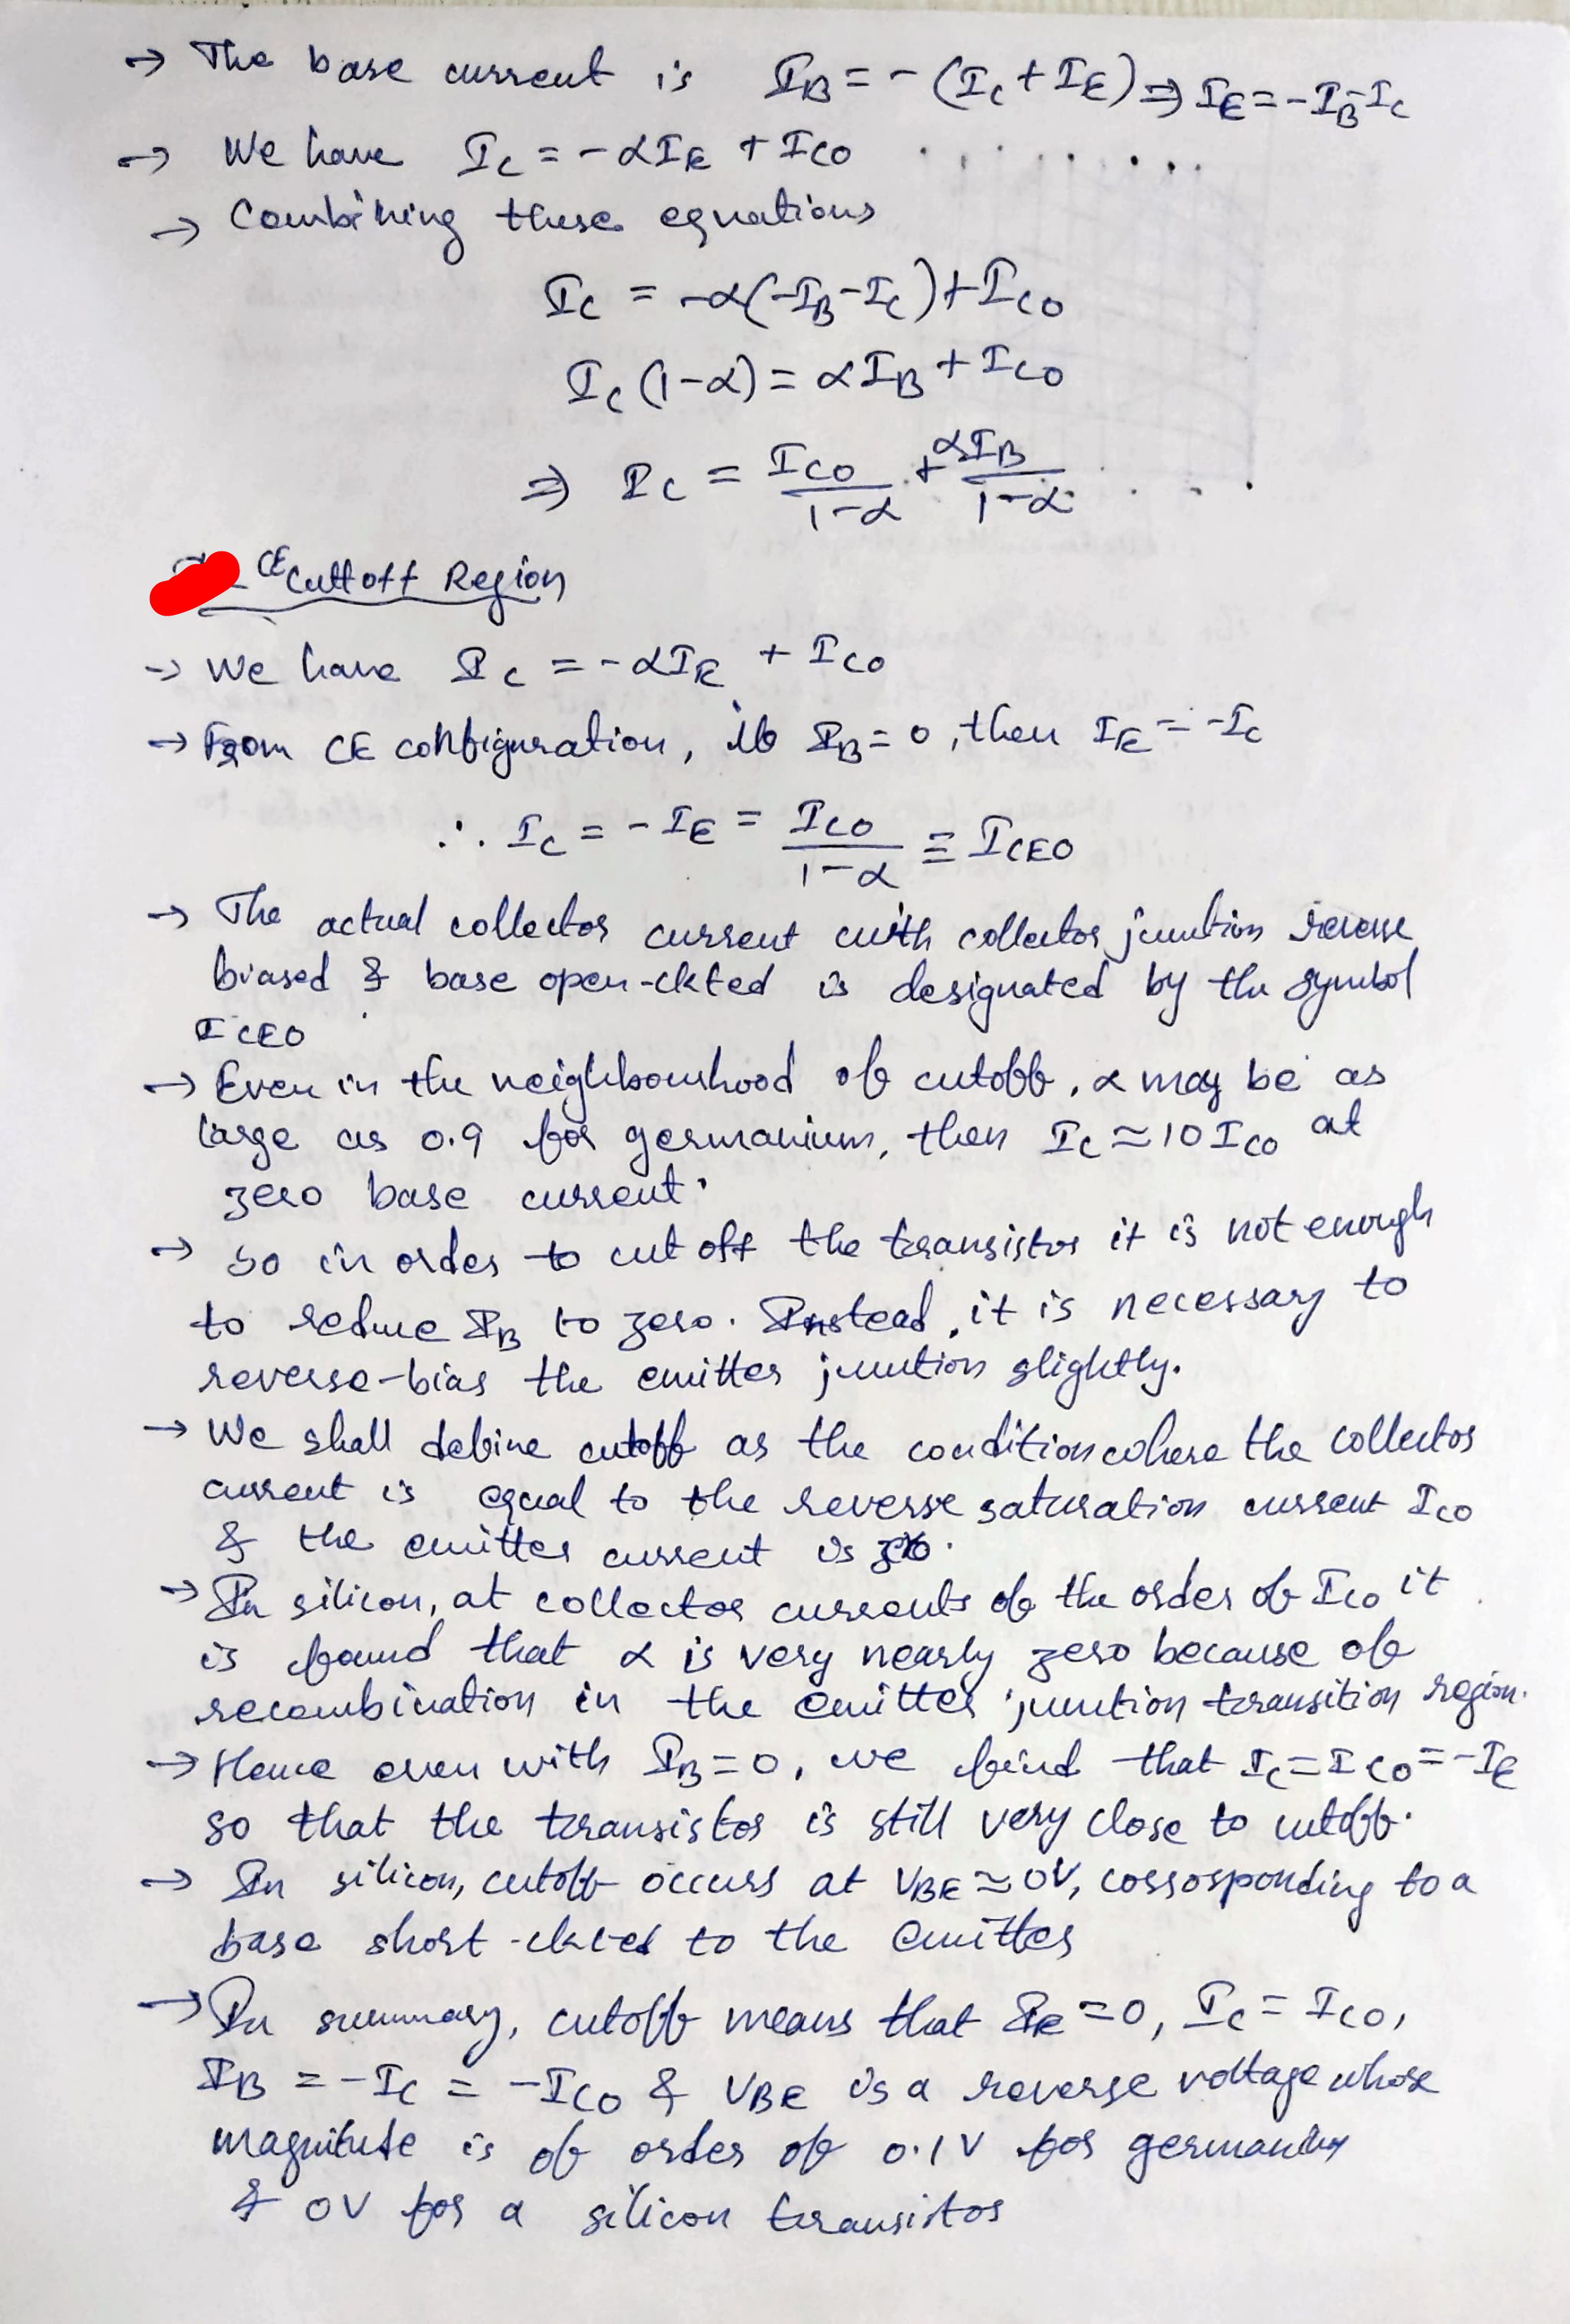 → The base current is I_B = -(I_C + I_E) ⇒ I_E = -I_B - I_C
→ We have I_C = -αI_E + I_CO . . . . . . . .
→ Combining these equations
I_C = -α(-I_B - I_C) + I_CO
I_C (1-α) = αI_B + I_CO
⇒ I_C = I_CO/(1-α) + αI_B/(1-α) . . .
CE Cuttoff Region
→ We have I_C = -αI_E + I_CO
→ From CE configuration, if I_B = 0, then I_E = -I_C
∴ I_C = -I_E = I_CO/(1-α) ≡ I_CEO
→ The actual collector current with collector junction reverse
biased & base open-ckted is designated by the symbol
I_CEO
→ Even in the neighbourhood of cutoff, α may be as
large as 0.9 for germanium, then I_C ≈ 10 I_CO at
zero base current.
→ So in order to cut off the transistor it is not enough
to reduce I_B to zero. Instead, it is necessary to
reverse-bias the emitter junction slightly.
→ We shall define cutoff as the condition where the collector
current is equal to the reverse saturation current I_CO
& the emitter current is zero.
→ In silicon, at collector currents of the order of I_CO it
is found that α is very nearly zero because of
recombination in the emitter junction transition region.
→ Hence even with I_B = 0, we find that I_C = I_CO = -I_E
so that the transistor is still very close to cutoff.
→ In silicon, cutoff occurs at V_BE ≈ 0V, corrosponding to a
base short-ckted to the emitter
→ In summary, cutoff means that I_E = 0, I_C = I_CO,
I_B = -I_C = -I_CO & V_BE is a reverse voltage whose
magnitude is of order of 0.1 V for germanium
& 0V for a silicon transistor